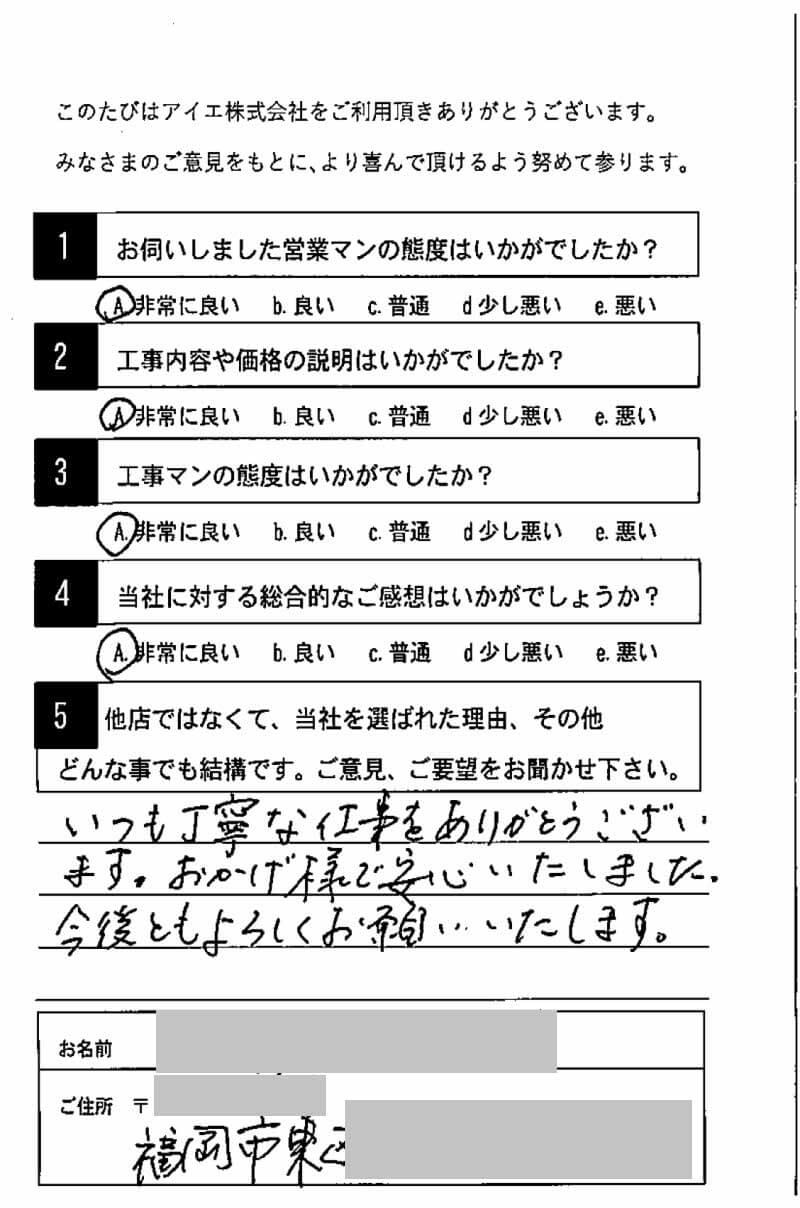 このたびはアイエ株式会社をご利用頂きありがとうございます。
みなさまのご意見をもとに、より喜んで頂けるよう努めて参ります。
1 お伺いしました営業マンの態度はいかがでしたか？
A 非常に良い b. 良い c. 普通 d 少し悪い e. 悪い
2 工事内容や価格の説明はいかがでしたか？
A 非常に良い b. 良い c. 普通 d 少し悪い e. 悪い
3 工事マンの態度はいかがでしたか？
A. 非常に良い b. 良い c. 普通 d 少し悪い e. 悪い
4 当社に対する総合的なご感想はいかがでしょうか？
A. 非常に良い b. 良い c. 普通 d 少し悪い e. 悪い
5 他店ではなくて、当社を選ばれた理由、その他
どんな事でも結構です。ご意見、ご要望をお聞かせ下さい。
いつも丁寧な仕事をありがとうござい
ます。おかげ様で安心いたしました。
今後ともよろしくお願いいたします。
お名前
ご住所 〒
福岡市東区